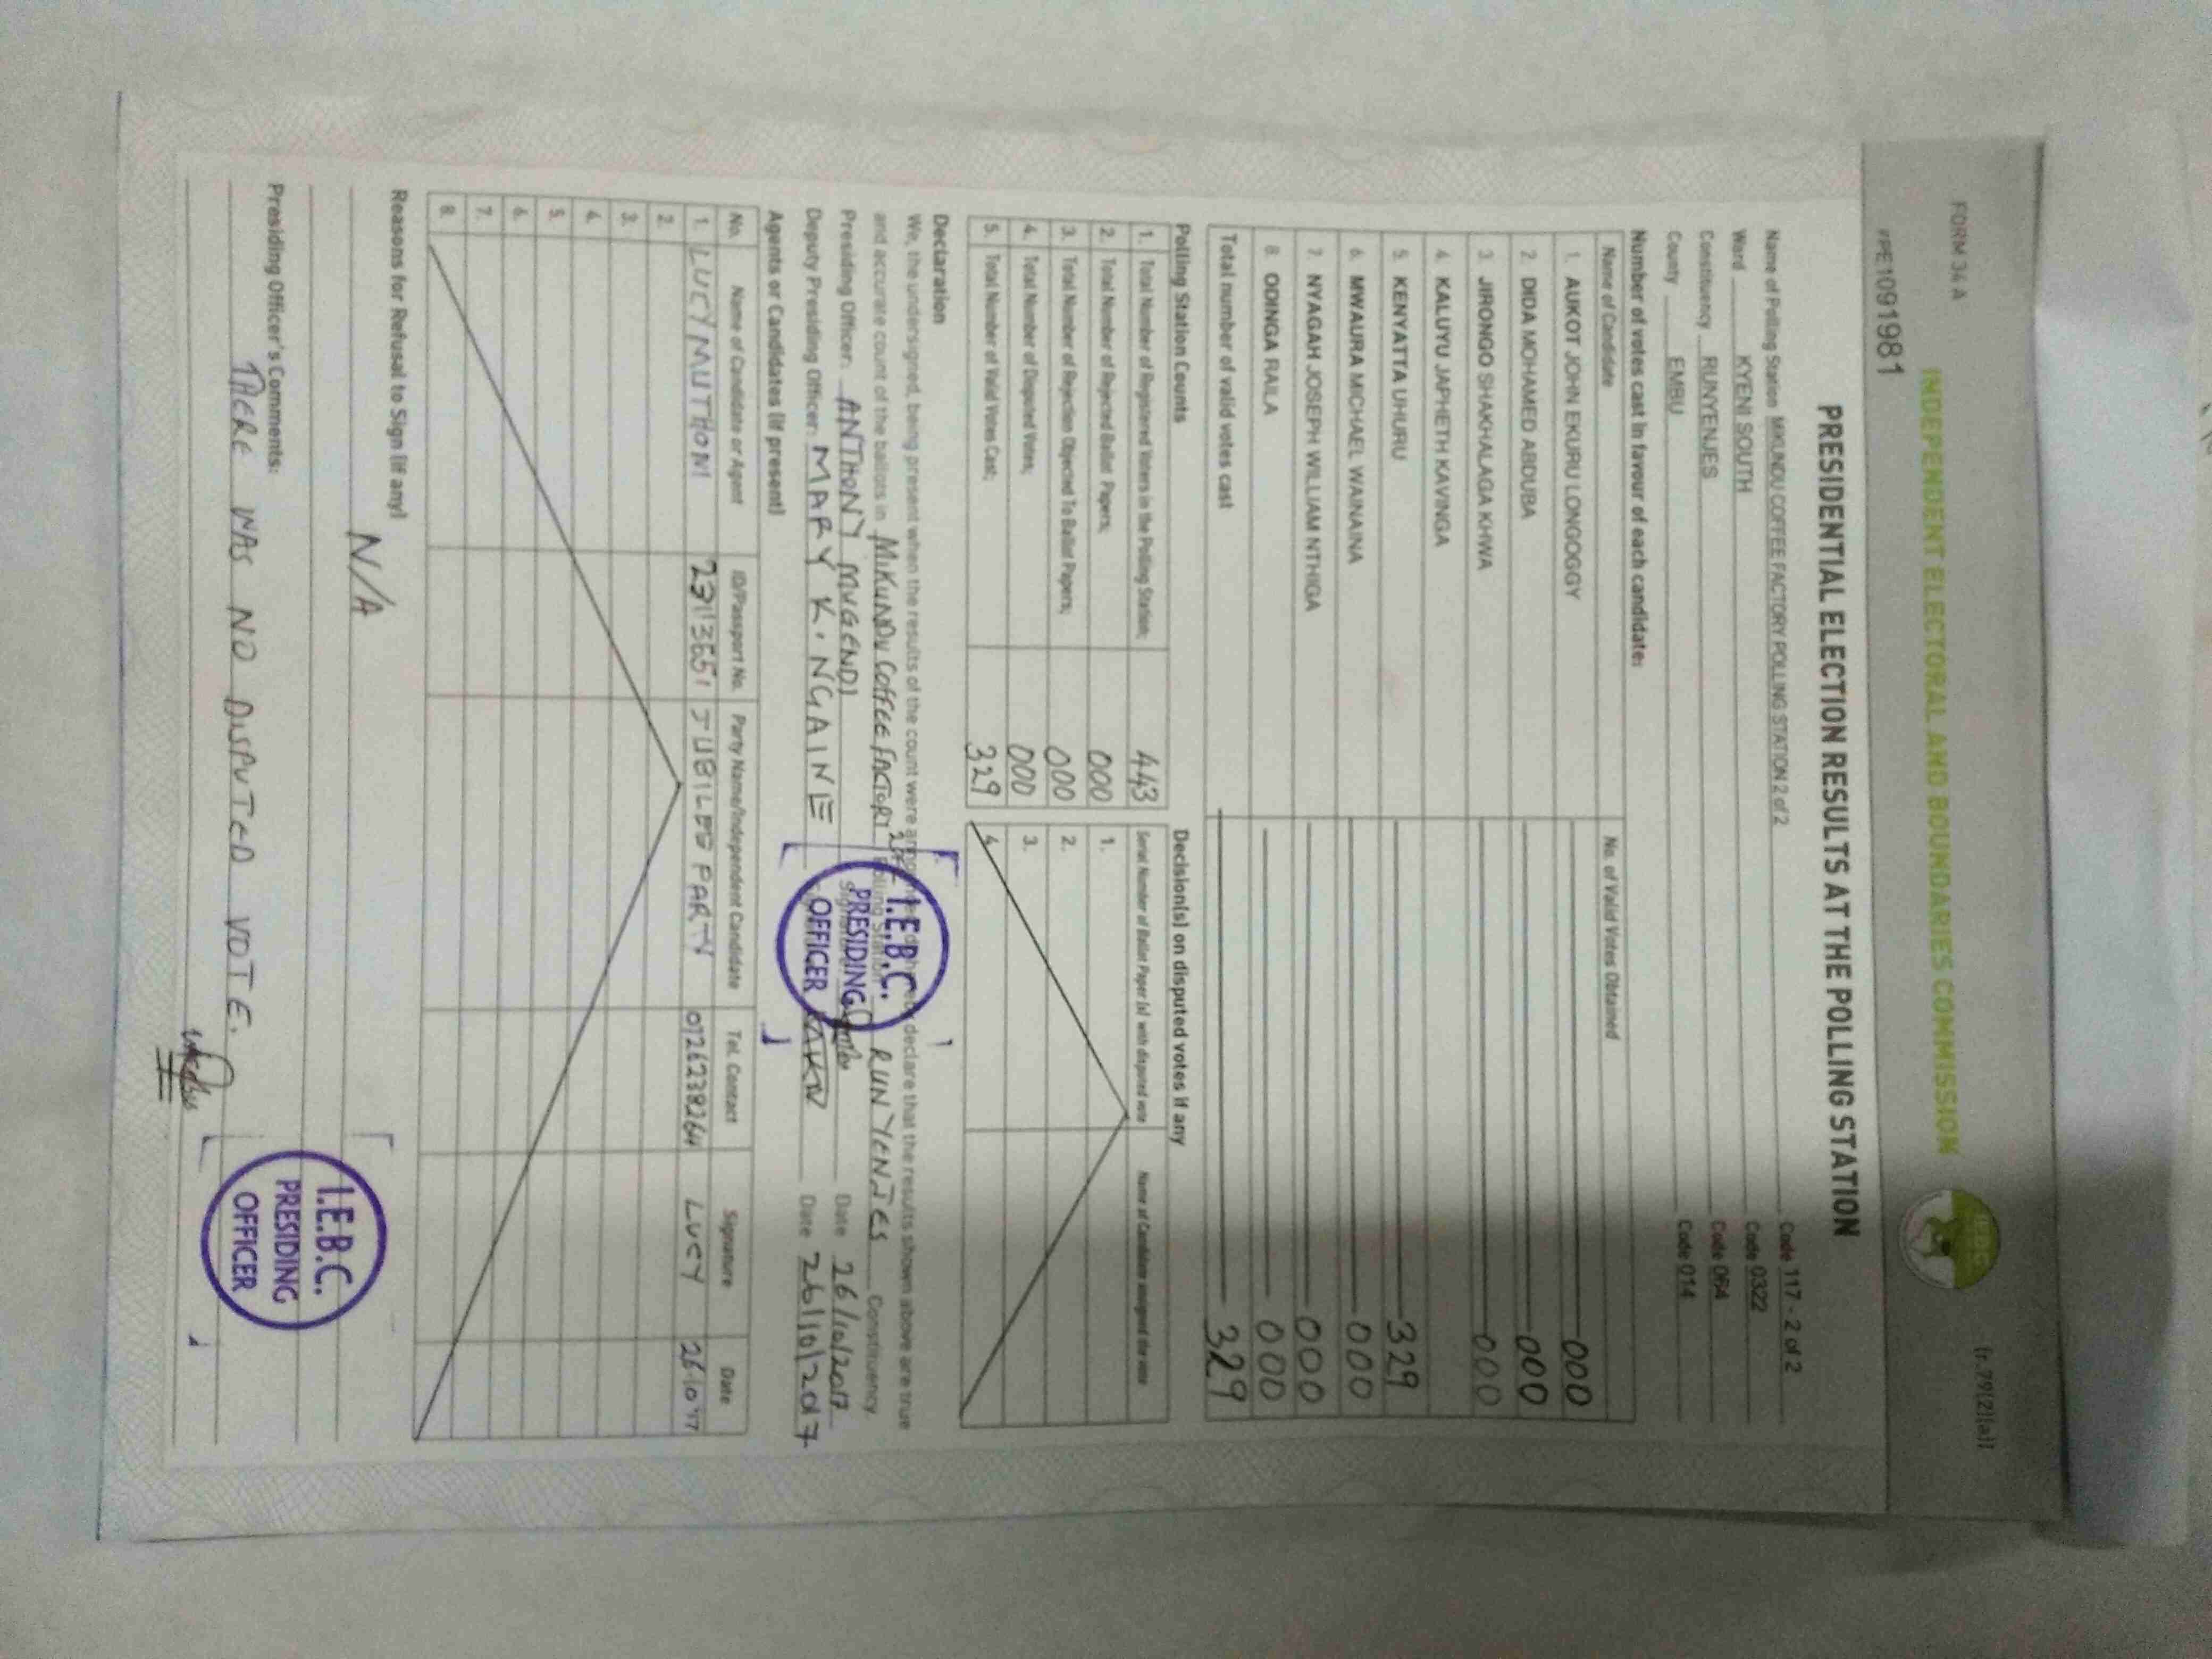 FORM 34 A
(r.79(2)(a))
INDEPENDENT ELECTORAL AND BOUNDARIES COMMISSION
IEBC
PE1091981
PRESIDENTIAL ELECTION RESULTS AT THE POLLING STATION
Name of Polling Station MIKUNDU COFFEE FACTORY POLLING STATION 2 of 2 Code 117 - 2 of 2
Ward KYENI SOUTH Code 0322
Constituency RUNYENJES Code 064
County EMBU Code 014
Number of votes cast in favour of each candidate:
Name of Candidate No. of Valid Votes Obtained
1. AUKOT JOHN EKURU LONGOGGY 000
2. DIDA MOHAMED ABDUBA 000
3. JIRONGO SHAKHALAGA KHWA 000
4. KALUYU JAPHETH KAVINGA
5. KENYATTA UHURU 329
6. MWAURA MICHAEL WAINAINA 000
7. NYAGAH JOSEPH WILLIAM NTHIGA 000
8. ODINGA RAILA 000
Total number of valid votes cast 329
Polling Station Counts Decision(s) on disputed votes if any
1. Total Number of Registered Voters in the Polling Station; 443 Serial Number of Ballot Paper (s) with disputed vote Name of Candidate assigned the vote
2. Total Number of Rejected Ballot Papers; 000 1.
3. Total Number of Rejection Objected To Ballot Papers; 000 2.
4. Total Number of Disputed Votes; 000 3.
5. Total Number of Valid Votes Cast; 329 4.
Declaration
We, the undersigned, being present when the results of the count were announced, hereby declare that the results shown above are true
and accurate count of the ballots in MIKUNDU COFFEE FACTORY Polling Station RUNYENJES Constituency.
Presiding Officer: ANTHONY MUGENDI Date 26/10/2017
Deputy Presiding Officer: MARY K. NGAINE Date 26/10/2017
I.E.B.C.
PRESIDING
OFFICER
Agents or Candidates (if present)
No. Name of Candidate or Agent ID/Passport No. Party Name/Independent Candidate Tel. Contact Signature Date
1. LUCY MUTHONI 23113651 JUBILEE PARTY 0726238264 LUCY 26 10 17
2.
3.
4.
5.
6.
7.
8.
Reasons for Refusal to Sign (if any)
N/A
Presiding Officer's Comments:
THERE WAS NO DISPUTED VOTE.
I.E.B.C.
PRESIDING
OFFICER